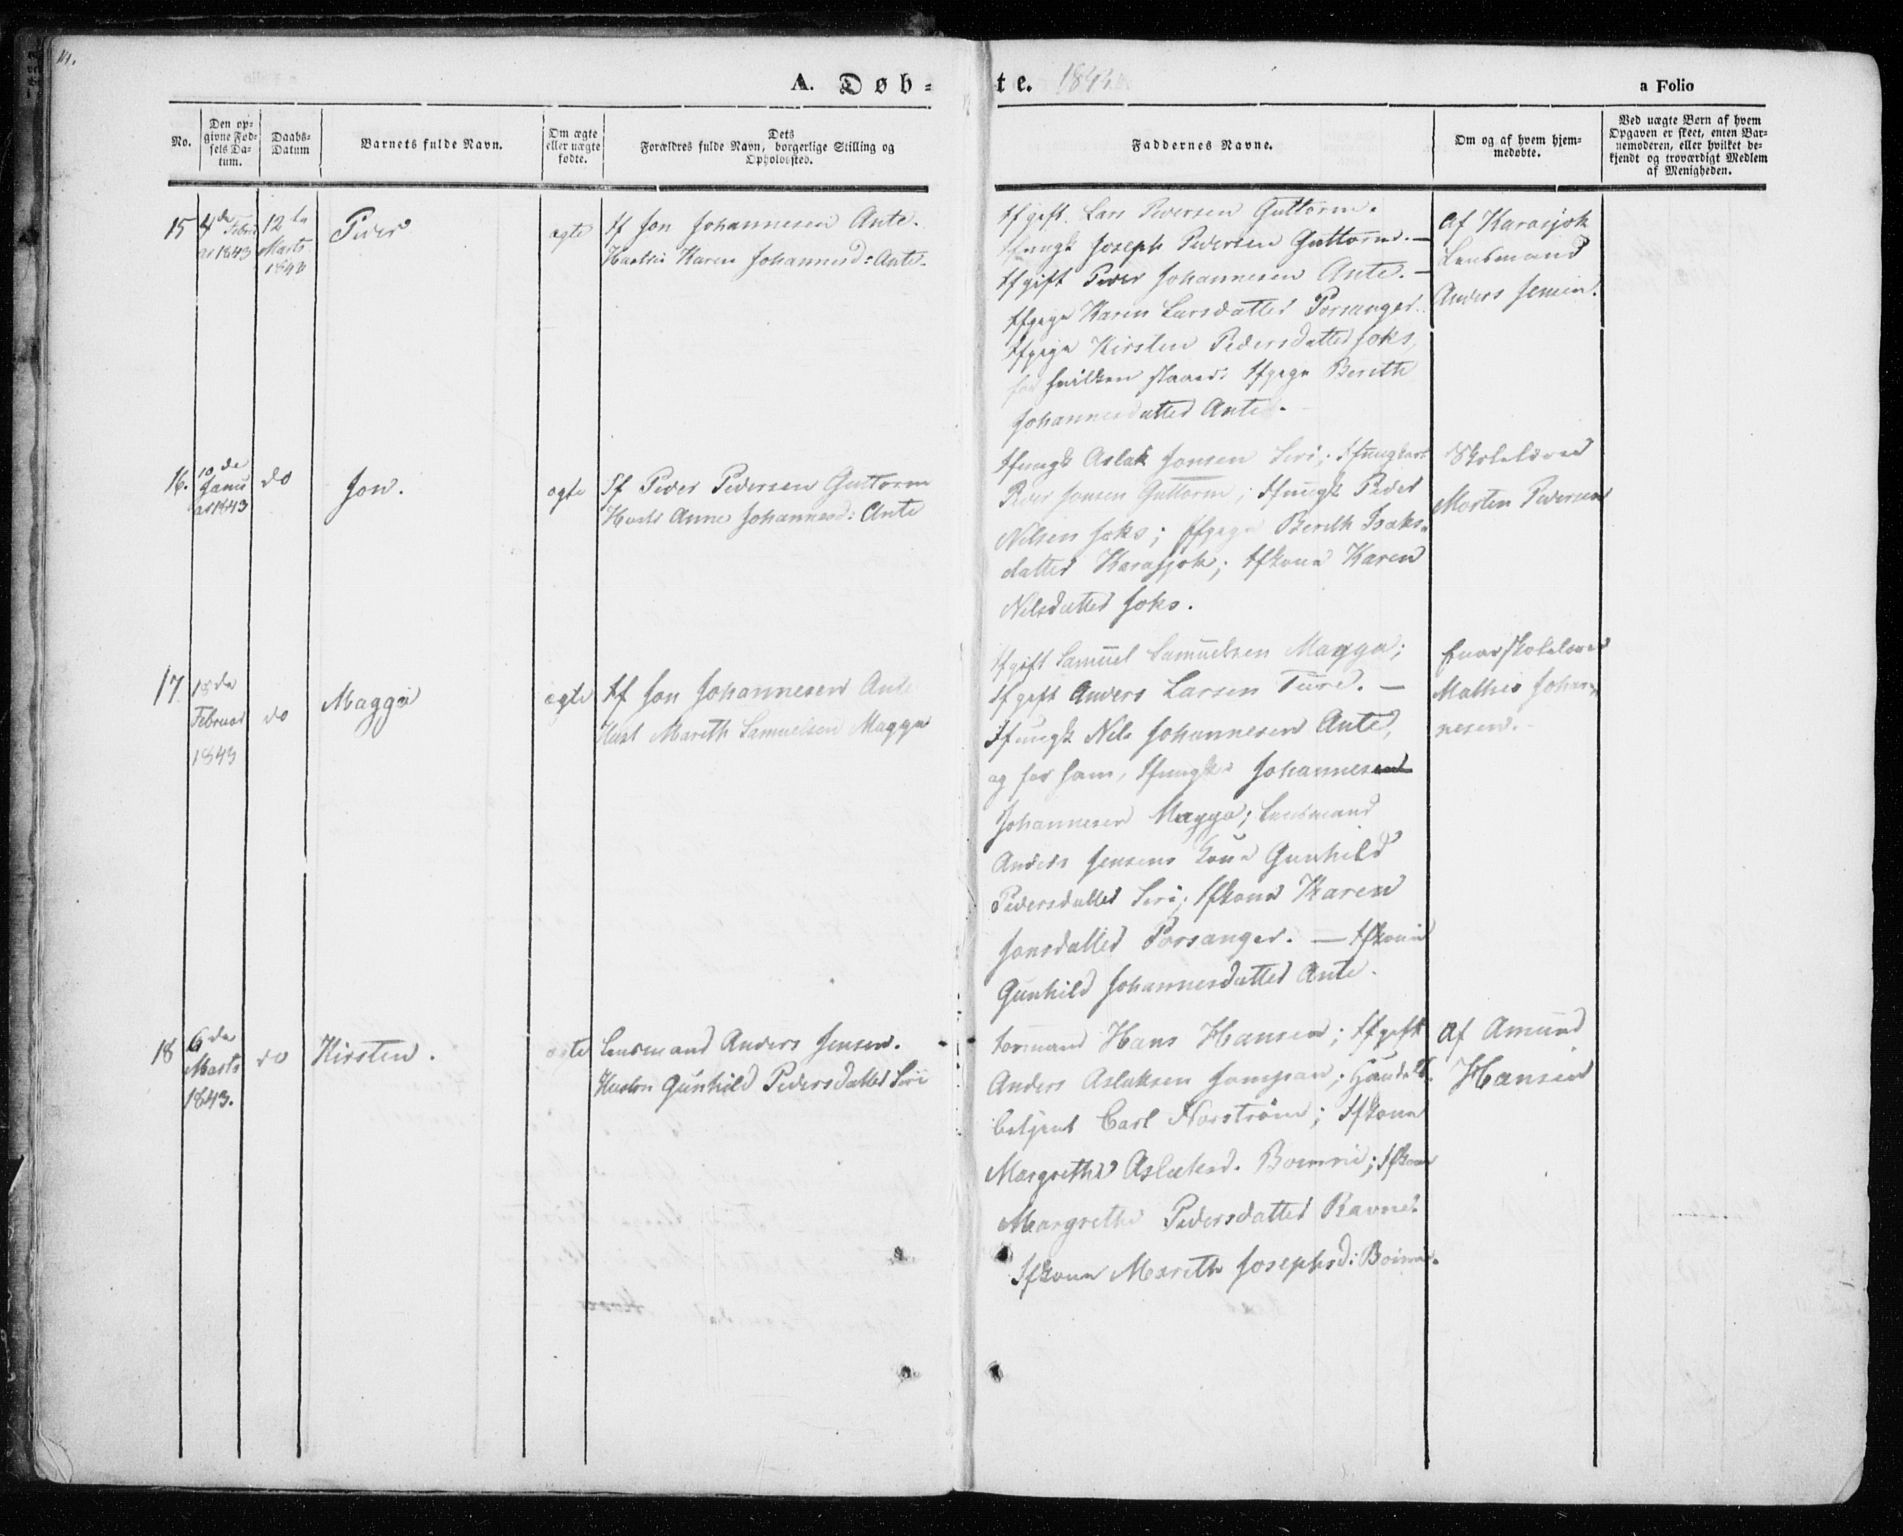 A. Døb-
te. 1843
a Folio
No.
Den op-
givne Fød-
sels Da-
tum.
Daabs-
Datum
Barnets fulde Navn.
Om ægte
eller uægte
fødte.
Dets
Forældres fulde Navn, borgerlige Stilling og
Opholdssted.
Faddernes Navne.
Om og af hvem hjem-
medøbte.
Ved uægte Børn af hvem
Opgaven er skeet, enten Bar-
nemoderen, eller hvilket be-
kjendt og troværdigt Medlem
af Menigheden.
15
4de Febru
ar 1843
12te
Marts
1843
Peder
ægte
Sf Jon Johannesen Ante.
Karen Johannesd: Ante.
Sfgift Lars Pedersen Guttorm.
Sfungk Joseph Pedersen Guttorm. —
Sfgift Peder Johannesen Ante. —
Sfpige Karen Larsdatter Porsanger.
Sfpige Kirsten Pedersdatter Joks,
for hvilken staaer: Sfpige Berith
Johannesdatter Ante. —
Af Karasjok
Lensmand
Anders Jensen.
16.
10de
Janu
ar 1843
do
Jon.
ægte
Sf Peder Pedersen Guttorm
Anne Johannesd: Ante
Sfungk Aslak Jonsen Siri; Sfungkarl
Peder Jonsen Guttorm; Sfungk Peder
Nilsen Joks; Sfpige Berith Isaks-
datter Karasjok; Sfkone Karen
Nilsdatter Joks.
Skolelærer
Morten Pedersen
17
18de
Februar
1843
do
Magga
ægte
Sf Jon Johannesen Ante
Hust Marith Samuelsen Magga
Sfgift Samuel Samuelsen Magga;
Sfgift Anders Larsen Ture. —
Sfungk Nils Johannesen Ante,
og for ham, Sfungk Johannesen
Johannesen Magga; Lensmand
Anders Jensens Kone Gunhild
Pedersdatter Siri; Sfkone Karen
Jonsdatter Porsanger. — Sfkone
Gunhild Johannesdatter Ante.
skolelærer
Mathis Johan-
nesen. —
18
6de
Marts
1843.
do
Kirsten.
ægte
Lensmand Anders Jensen.
Hustru Gunhild Pedersdatter Siri
Hans Hansen; Sfgift
Anders Aslaksen Jompan; Handels-
betjent Carl Norstrøm; Sfkone
Margrethe Aslaksd. Boinie; Sfkone
Margrethe Pedersdatter Ravne.
Sfkone Marith Josephsd: Boinie.
Af Amund
Hansen